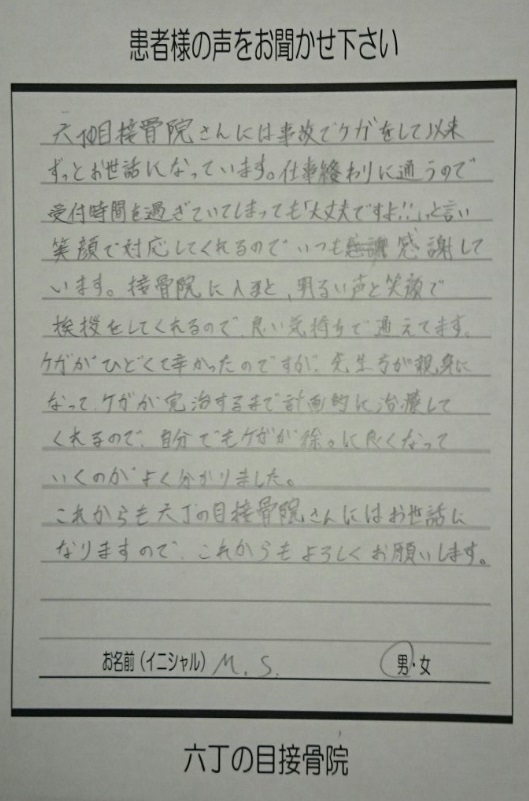 患者様の声をお聞かせ下さい
六丁の目接骨院さんには事故でケガをして以来
ずっとお世話になっています。仕事終わりに通うので
受付時間を過ぎていてしまっても「大丈夫ですよ!!」と言い
笑顔で対応してくれるのでいつも感謝して
います。接骨院に入ると、明るい声と笑顔で
挨拶をしてくれるので、良い気持ちで通えてます。
ケガがひどくて辛かったのですが、先生方が親身に
なって、ケガが完治するまで計画的に治療して
くれるので、自分でもケガが徐々に良くなって
いくのがよく分かりました。
これからも六丁の目接骨院さんにはお世話に
なりますので、これからもよろしくお願いします。
お名前(イニシャル) M. S. 男・女
六丁の目接骨院